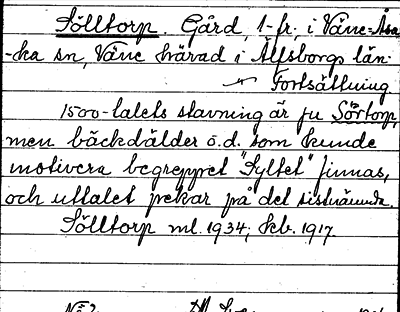 Sölltorp. Gård, 1-fr., i Väne-Åsa-
-ka sn, Väne härad i Älfsborgs län.
Fortsättning
1500-talets stavning är ju Sörtorp,
men bäckdälder o.d. som kunde
motivera begreppet "Syltet" finnas,
och uttalet pekar på det sistnämnda.
Sölltorp ml. 1934; kb. 1917